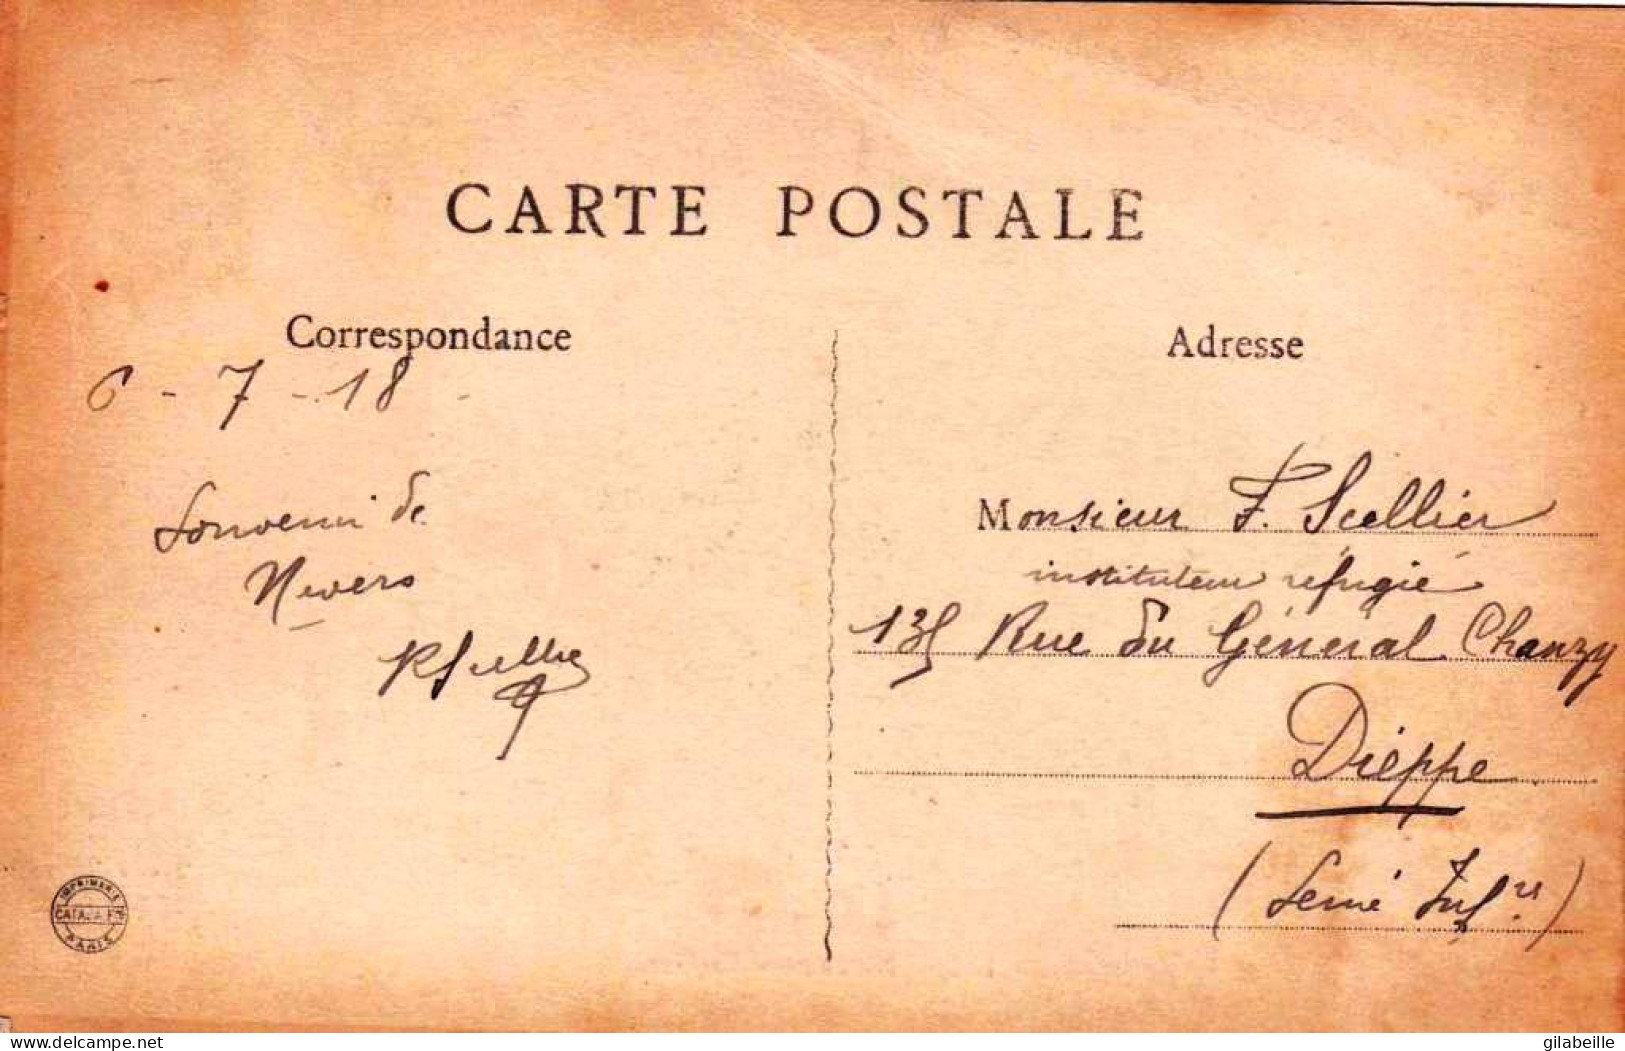 CARTE POSTALE
Correspondance
6 - 7 - 18
Souvenir de
Nevers
Adresse
Monsieur F. Scellier
instituteur réfugié
135 Rue du Général Chanzy
Dieppe
(Seine Infre)
IMPRIMERIE
CATALA FRES
PARIS
delcampe.net
gilabeille